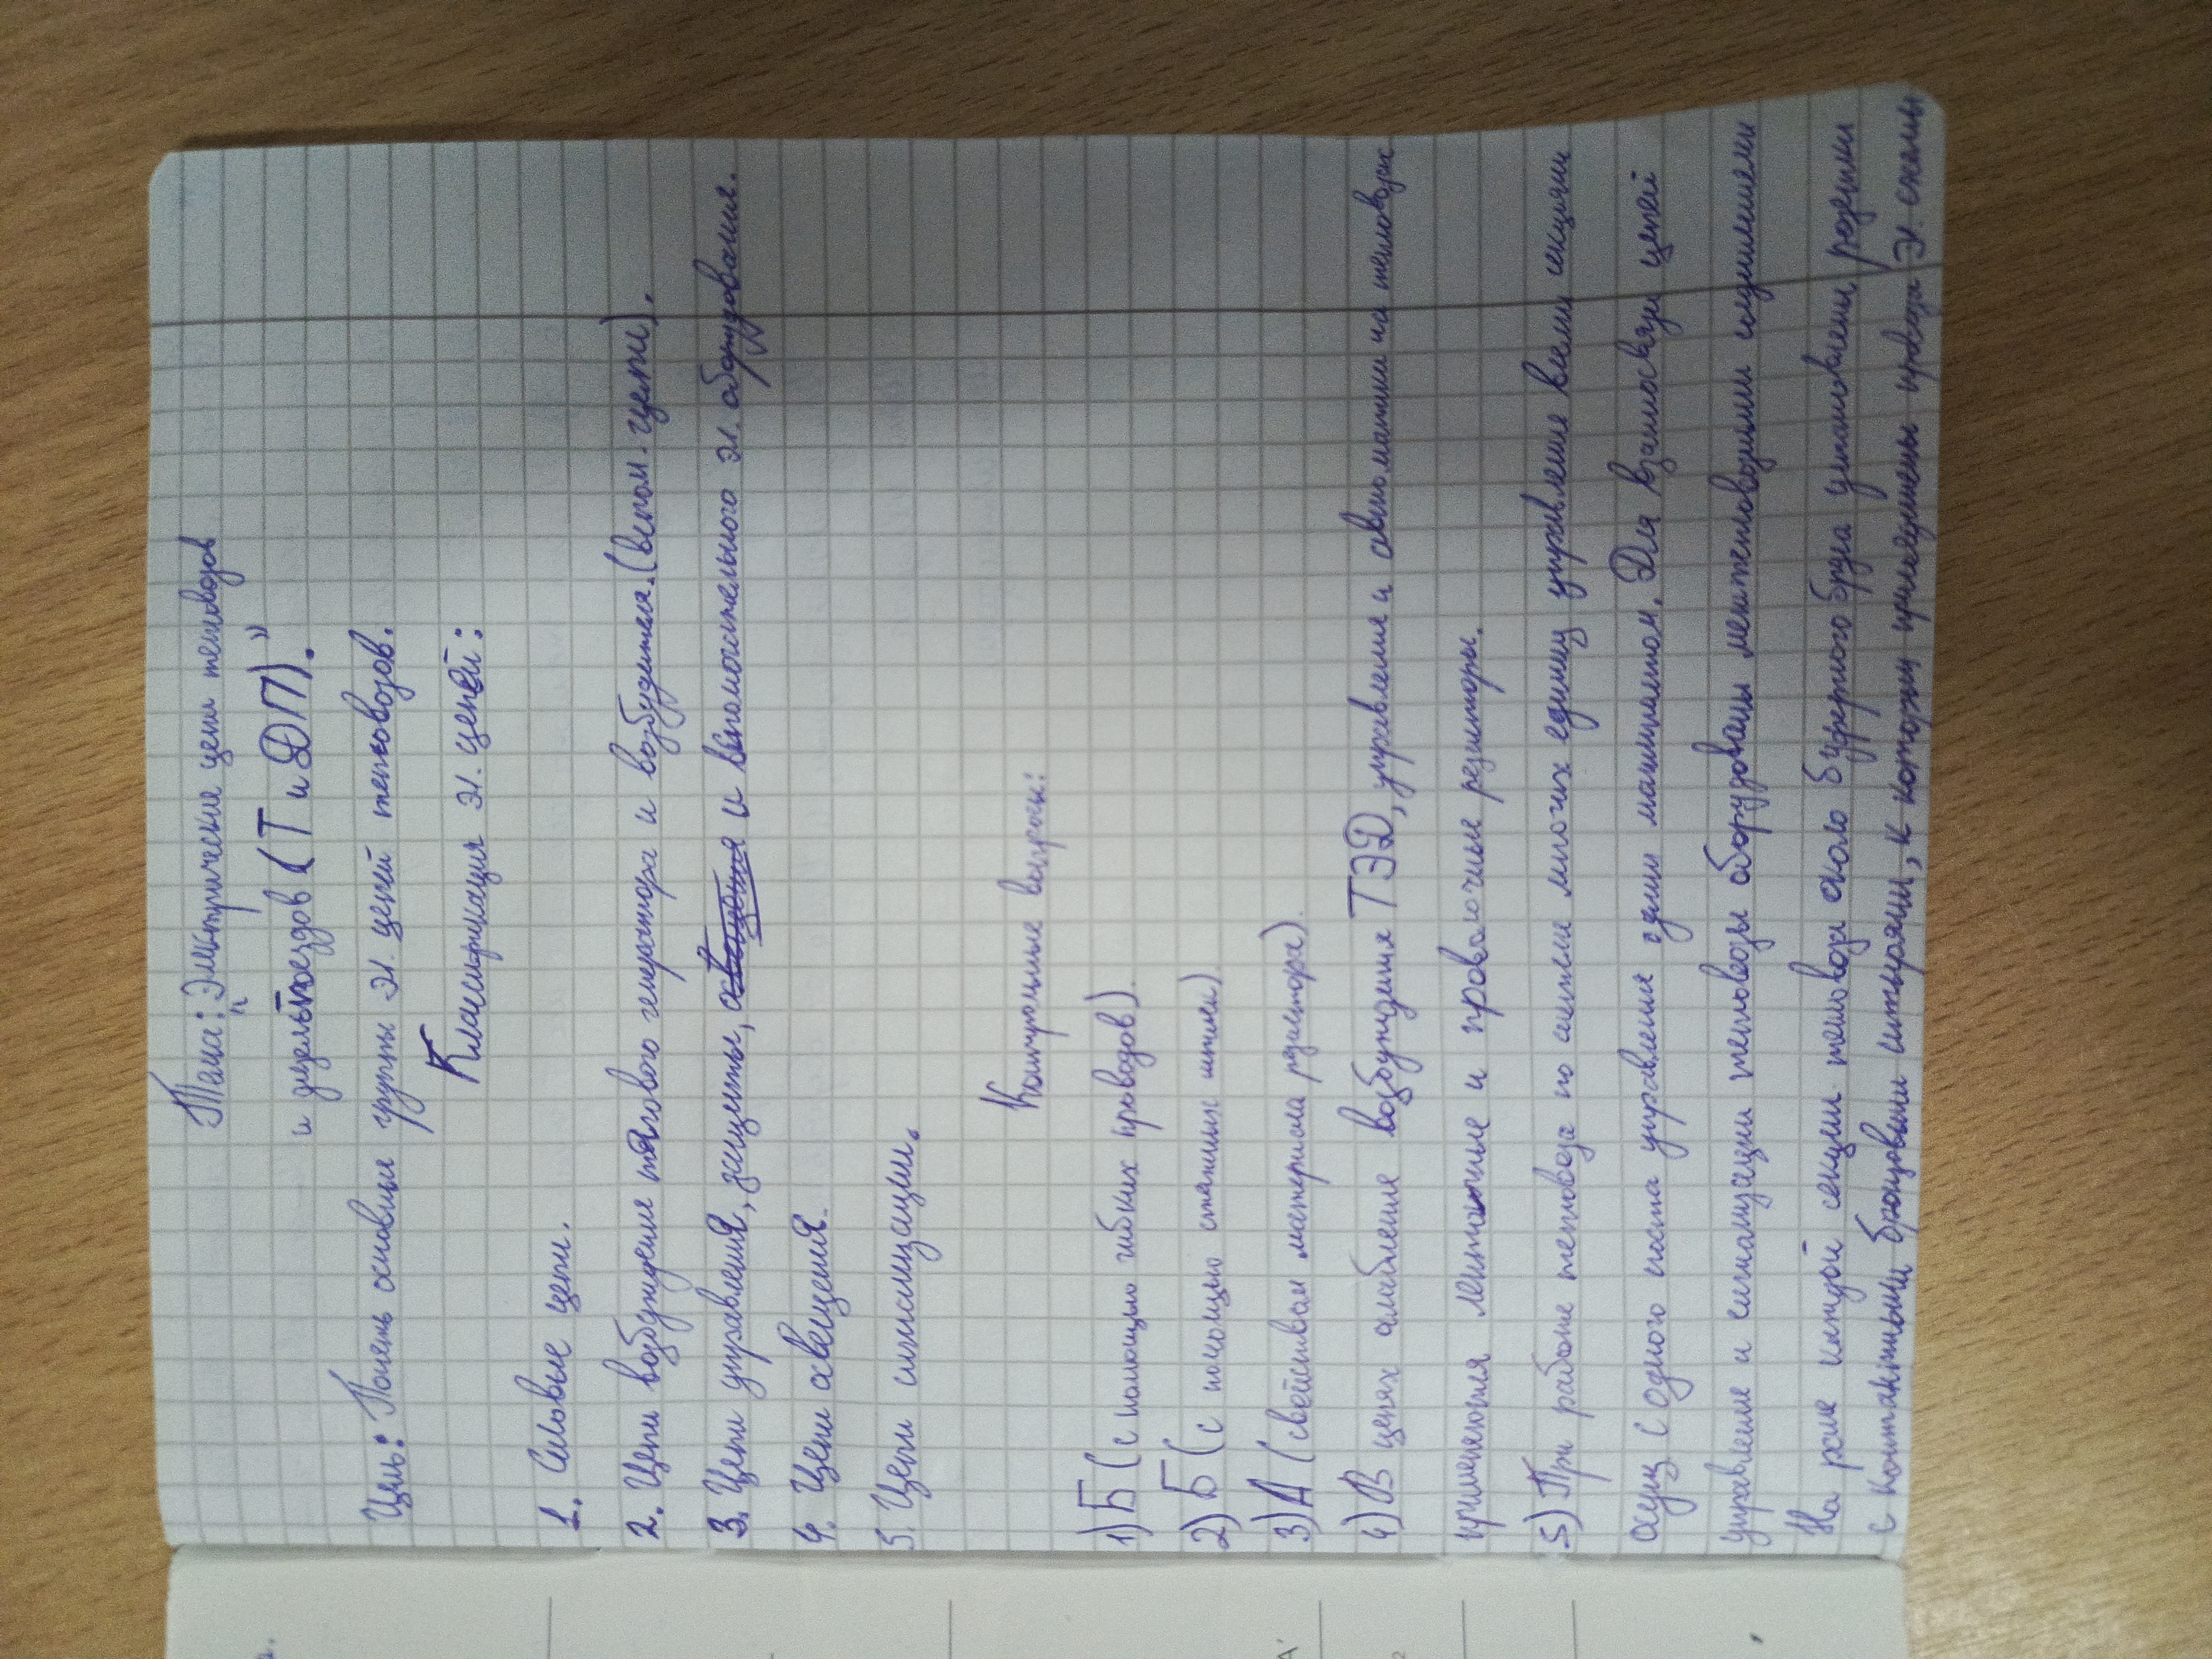 Тема: "Электрические цепи тепловозов
и дизельпоездов (Т и ДП)."
Цель: Понять основные группы эл. цепей тепловозов.
Классификация эл. цепей:
1. Силовые цепи.
2. Цепи возбуждение тягового генератора и возбудителя. (вспом. цепи).
3. Цепи управления, защиты, и вспомогательного эл. оборудования.
4. Цепи освещения.
5. Цепи сигнализации.
Контрольные вопросы:
1) Б (с помощью гибких проводов).
2) Б (с помощью стяжных шпилек)
3) А (свойством материала резистора).
4) В цепях ослабление возбуждения ТЭД, управления и автоматики на тепловозах
применяются ленточные и проволочные резисторы.
5) При работе тепловоза по системе многих единиц управление всеми секциями
осущ. с одного поста управления одним машинистом. Для взаимосвязи цепей
управление и сигнализации тепловозы оборудованы межтепловозными соединениями
На раме каждой секции тепловоза около буферного бруса установлены розетки
с контактными бронзовыми штырями, к которым припаяны провода эл. схемы